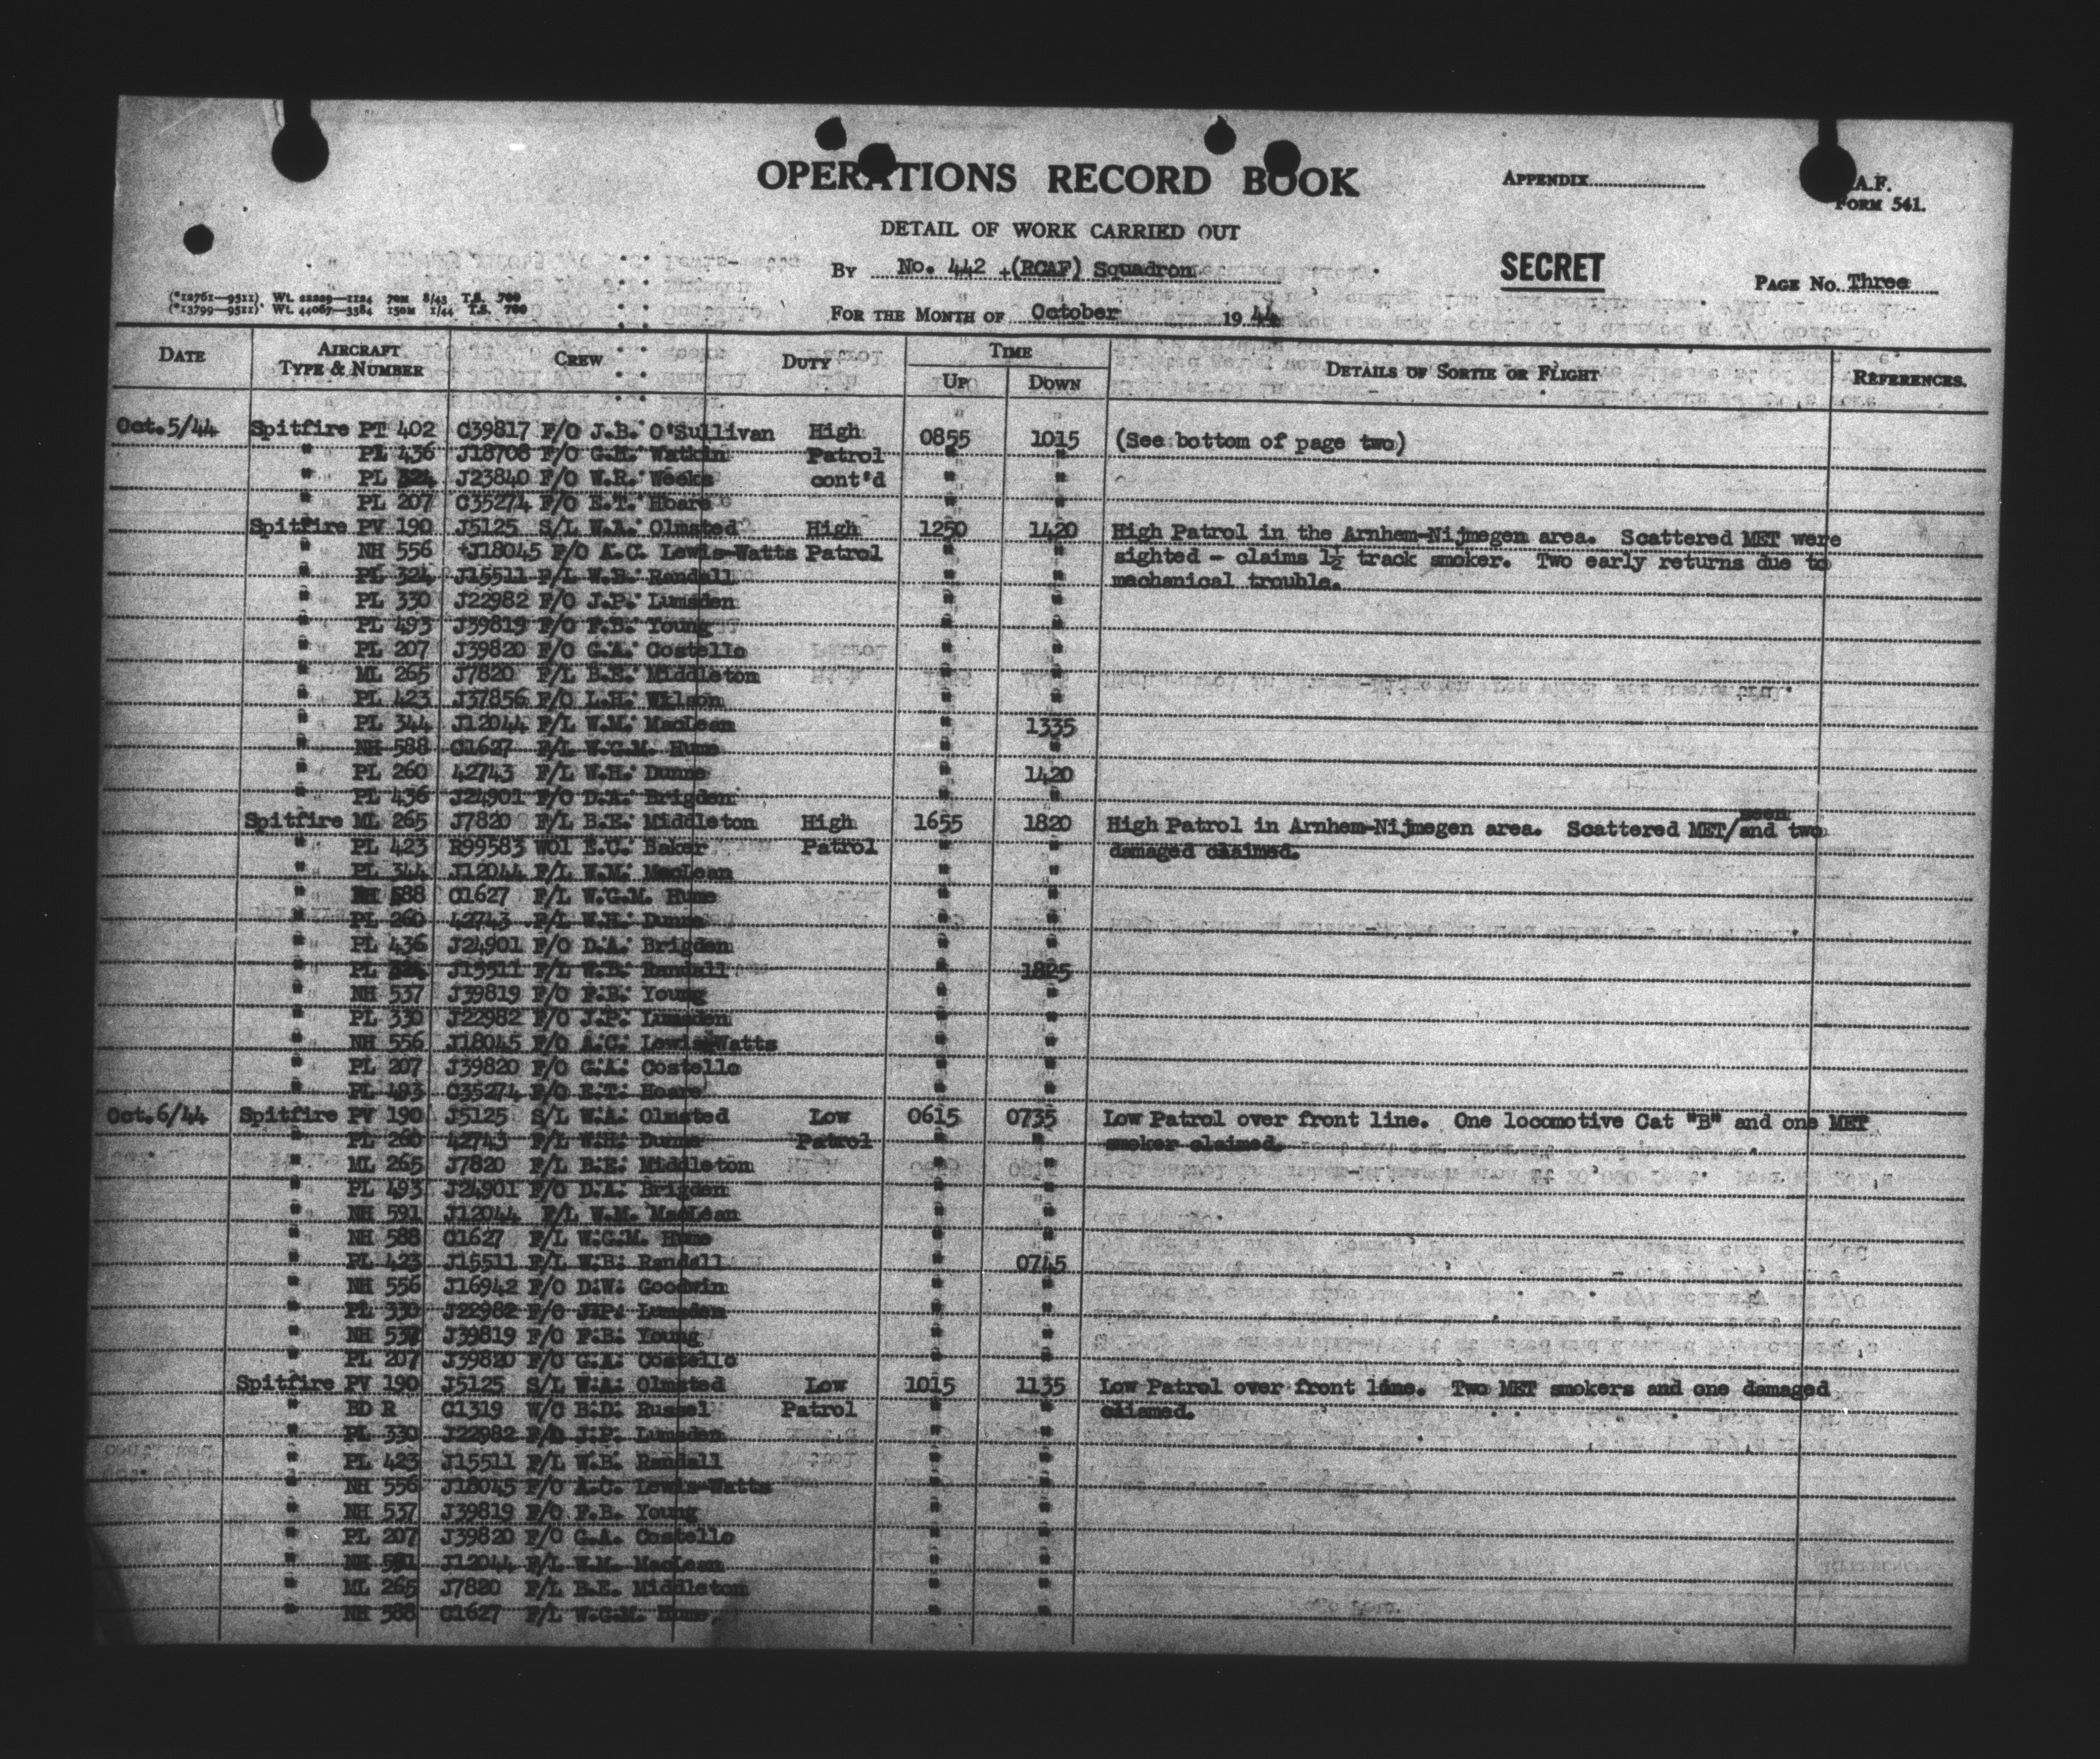 OPERATIONS RECORD BOOK
APPENDIX
A.F.
FORM 541.
DETAIL OF WORK CARRIED OUT
BY No. 442 (RCAF) Squadron
SECRET
PAGE No. Three
(*12761—9511) Wt. 22229—1124 70M 8/43 T.S. 700
(*13799—9511) Wt. 44067—3584 150M 1/44 T.S. 700
FOR THE MONTH OF October 1944
DATE AIRCRAFT TYPE & NUMBER CREW DUTY TIME UP DOWN DETAILS OF SORTIE OR FLIGHT REFERENCES.
Oct.5/44 Spitfire PT 402 C39817 F/O J.B. O'Sullivan High 0855 1015 (See bottom of page two)
" PL 436 J18708 F/O G.H. Watkin Patrol " "
" PL J23840 F/O W.R. Weeks cont'd " "
" PL 207 C35274 F/O E.T. Hoare " "
Spitfire PV 190 J5125 S/L W.A. Olmsted High 1250 1420 High Patrol in the Arnhem-Nijmegen area. Scattered MET were
" NH 556 J18045 F/O A.C. Lewis-Watts Patrol " " sighted - claims 1½ track smoker. Two early returns due to
" PL 324 J15511 F/L W.B. Randall " " mechanical trouble.
" PL 330 J22982 F/O J.P. Lumsden " "
" PL 493 J39819 F/O F.B. Young " "
" PL 207 J39820 F/O G.A. Costello " "
" ML 265 J7820 F/L B.E. Middleton " "
" PL 423 J37856 F/O L.H. Wilson " "
" PL 344 J12044 F/L W.M. MacLean " 1335
" NH 588 C1627 F/L W.G.M. Hume " "
" PL 260 42743 F/L W.H. Dunne " 1420
" PL 436 J24901 F/O D.A. Brigden " "
Spitfire ML 265 J7820 F/L B.E. Middleton High 1655 1820 High Patrol in Arnhem-Nijmegen area. Scattered MET/seen and two
" PL 423 R99583 WO1 E.C. Baker Patrol " " damaged claimed.
" PL 344 J12044 F/L W.M. MacLean " "
" NH 588 C1627 F/L W.G.M. Hume " "
" PL 260 42743 F/L W.H. Dunne " "
" PL 436 J24901 F/O D.A. Brigden " "
" PL J15511 F/L W.B. Randall " 1825
" NH 537 J39819 F/O F.B. Young " "
" PL 330 J22982 F/O J.P. Lumsden " "
" NH 556 J18045 F/O A.C. Lewis-Watts " "
" PL 207 J39820 F/O G.A. Costello " "
" PL 493 C35274 F/O E.T. Hoare " "
Oct.6/44 Spitfire PV 190 J5125 S/L W.A. Olmsted Low 0615 0735 Low Patrol over front line. One locomotive Cat "B" and one MET
" PL 260 42743 F/L W.H. Dunne Patrol " " smoker claimed.
" ML 265 J7820 F/L B.E. Middleton " "
" PL 493 J24901 F/O D.A. Brigden " "
" NH 591 J12044 F/L W.M. MacLean " "
" NH 588 C1627 F/L W.G.M. Hume " "
" PL 423 J15511 F/L W.B. Randall " 0745
" NH 556 J16942 F/O D.W. Goodwin " "
" PL 330 J22982 F/O J.P. Lumsden " "
" NH 537 J39819 F/O F.B. Young " "
" PL 207 J39820 F/O G.A. Costello " "
Spitfire PV 190 J5125 S/L W.A. Olmsted Low 1015 1135 Low Patrol over front line. Two MET smokers and one damaged
" BD R C1319 W/C B.D. Russel Patrol " " claimed.
" PL 330 J22982 F/O J.P. Lumsden " "
" PL 423 J15511 F/L W.B. Randall " "
" NH 556 J18045 F/O A.C. Lewis-Watts " "
" NH 537 J39819 F/O F.B. Young " "
" PL 207 J39820 F/O G.A. Costello " "
" NH 591 J12044 F/L W.M. MacLean " "
" ML 265 J7820 F/L B.E. Middleton " "
" NH 588 C1627 F/L W.G.M. Hume " "